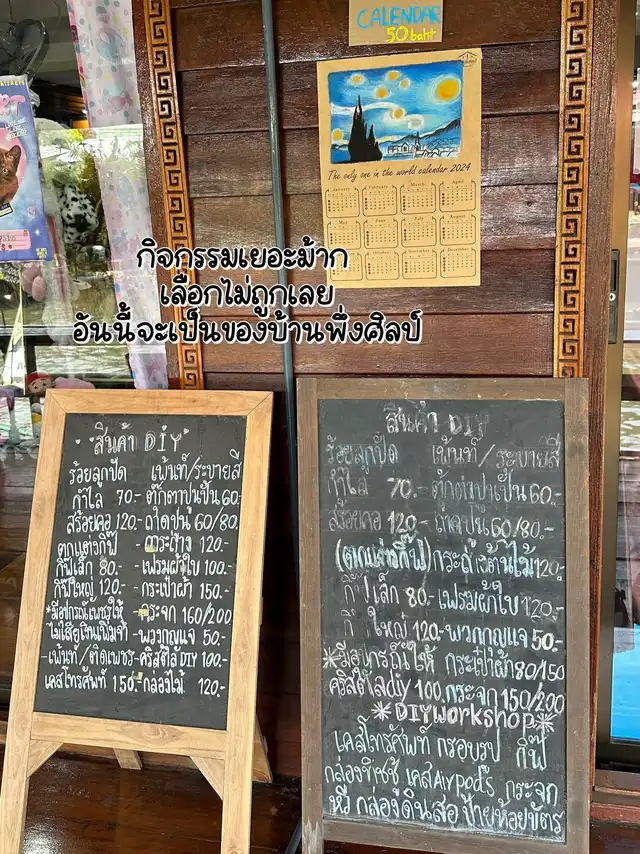 CALENDAR
50 baht
The only one in the world calendar 2024
January February March April
May June July August
October November December
กิจกรรมเยอะม้าก
เลือกไม่ถูกเลย
อันนี้จะเป็นของบ้านพึ่งศิลป์
สินค้า DIY
ร้อยลูกปัด เพ้นท์/ระบายสี
กำไล 70.- ตุ๊กตาปูนปั้น 60.-
สร้อยคอ 120.- ถาดปูน 60/80.-
ตกแต่งกิ๊ฟ - กระถาง 120.-
กิ๊ฟเล็ก 80.- - เฟรมผ้าใบ 100.-
กิ๊ฟใหญ่ 120.- - กระเป๋าผ้า 150.-
*มีอุปกรณ์เพชรให้ - กระจก 160/200
ไม่เสียเงินเพิ่มจ้า - พวงกุญแจ 50.-
- เพ้นท์/ติดเพชร - คริสตัล DIY 100.-
เคสโทรศัพท์ 150.- กล่องไม้ 120.-
สินค้า DIY
ร้อยลูกปัด เพ้นท์/ระบายสี
กำไล 70.- ตุ๊กตาปูนปั้น 60.-
สร้อยคอ 120.- ถาดปูน 60/80.-
(ตกแต่งกิ๊ฟ) กระถางต้นไม้ 120.-
กิ๊ฟเล็ก 80.- เฟรมผ้าใบ 120.-
กิ๊ฟใหญ่ 120.- พวงกุญแจ 50.-
*มีอุปกรณ์ให้ กระเป๋าผ้า 80/150
คริสตัล diy 100. กระจก 150/200
*DIY Workshop*
เคสโทรศัพท์ กรอบรูป กิ๊ฟ
กล่องทิชชู่ เคส Airpods กระจก
หวี กล่องดินสอ ป้ายห้อยบัตร